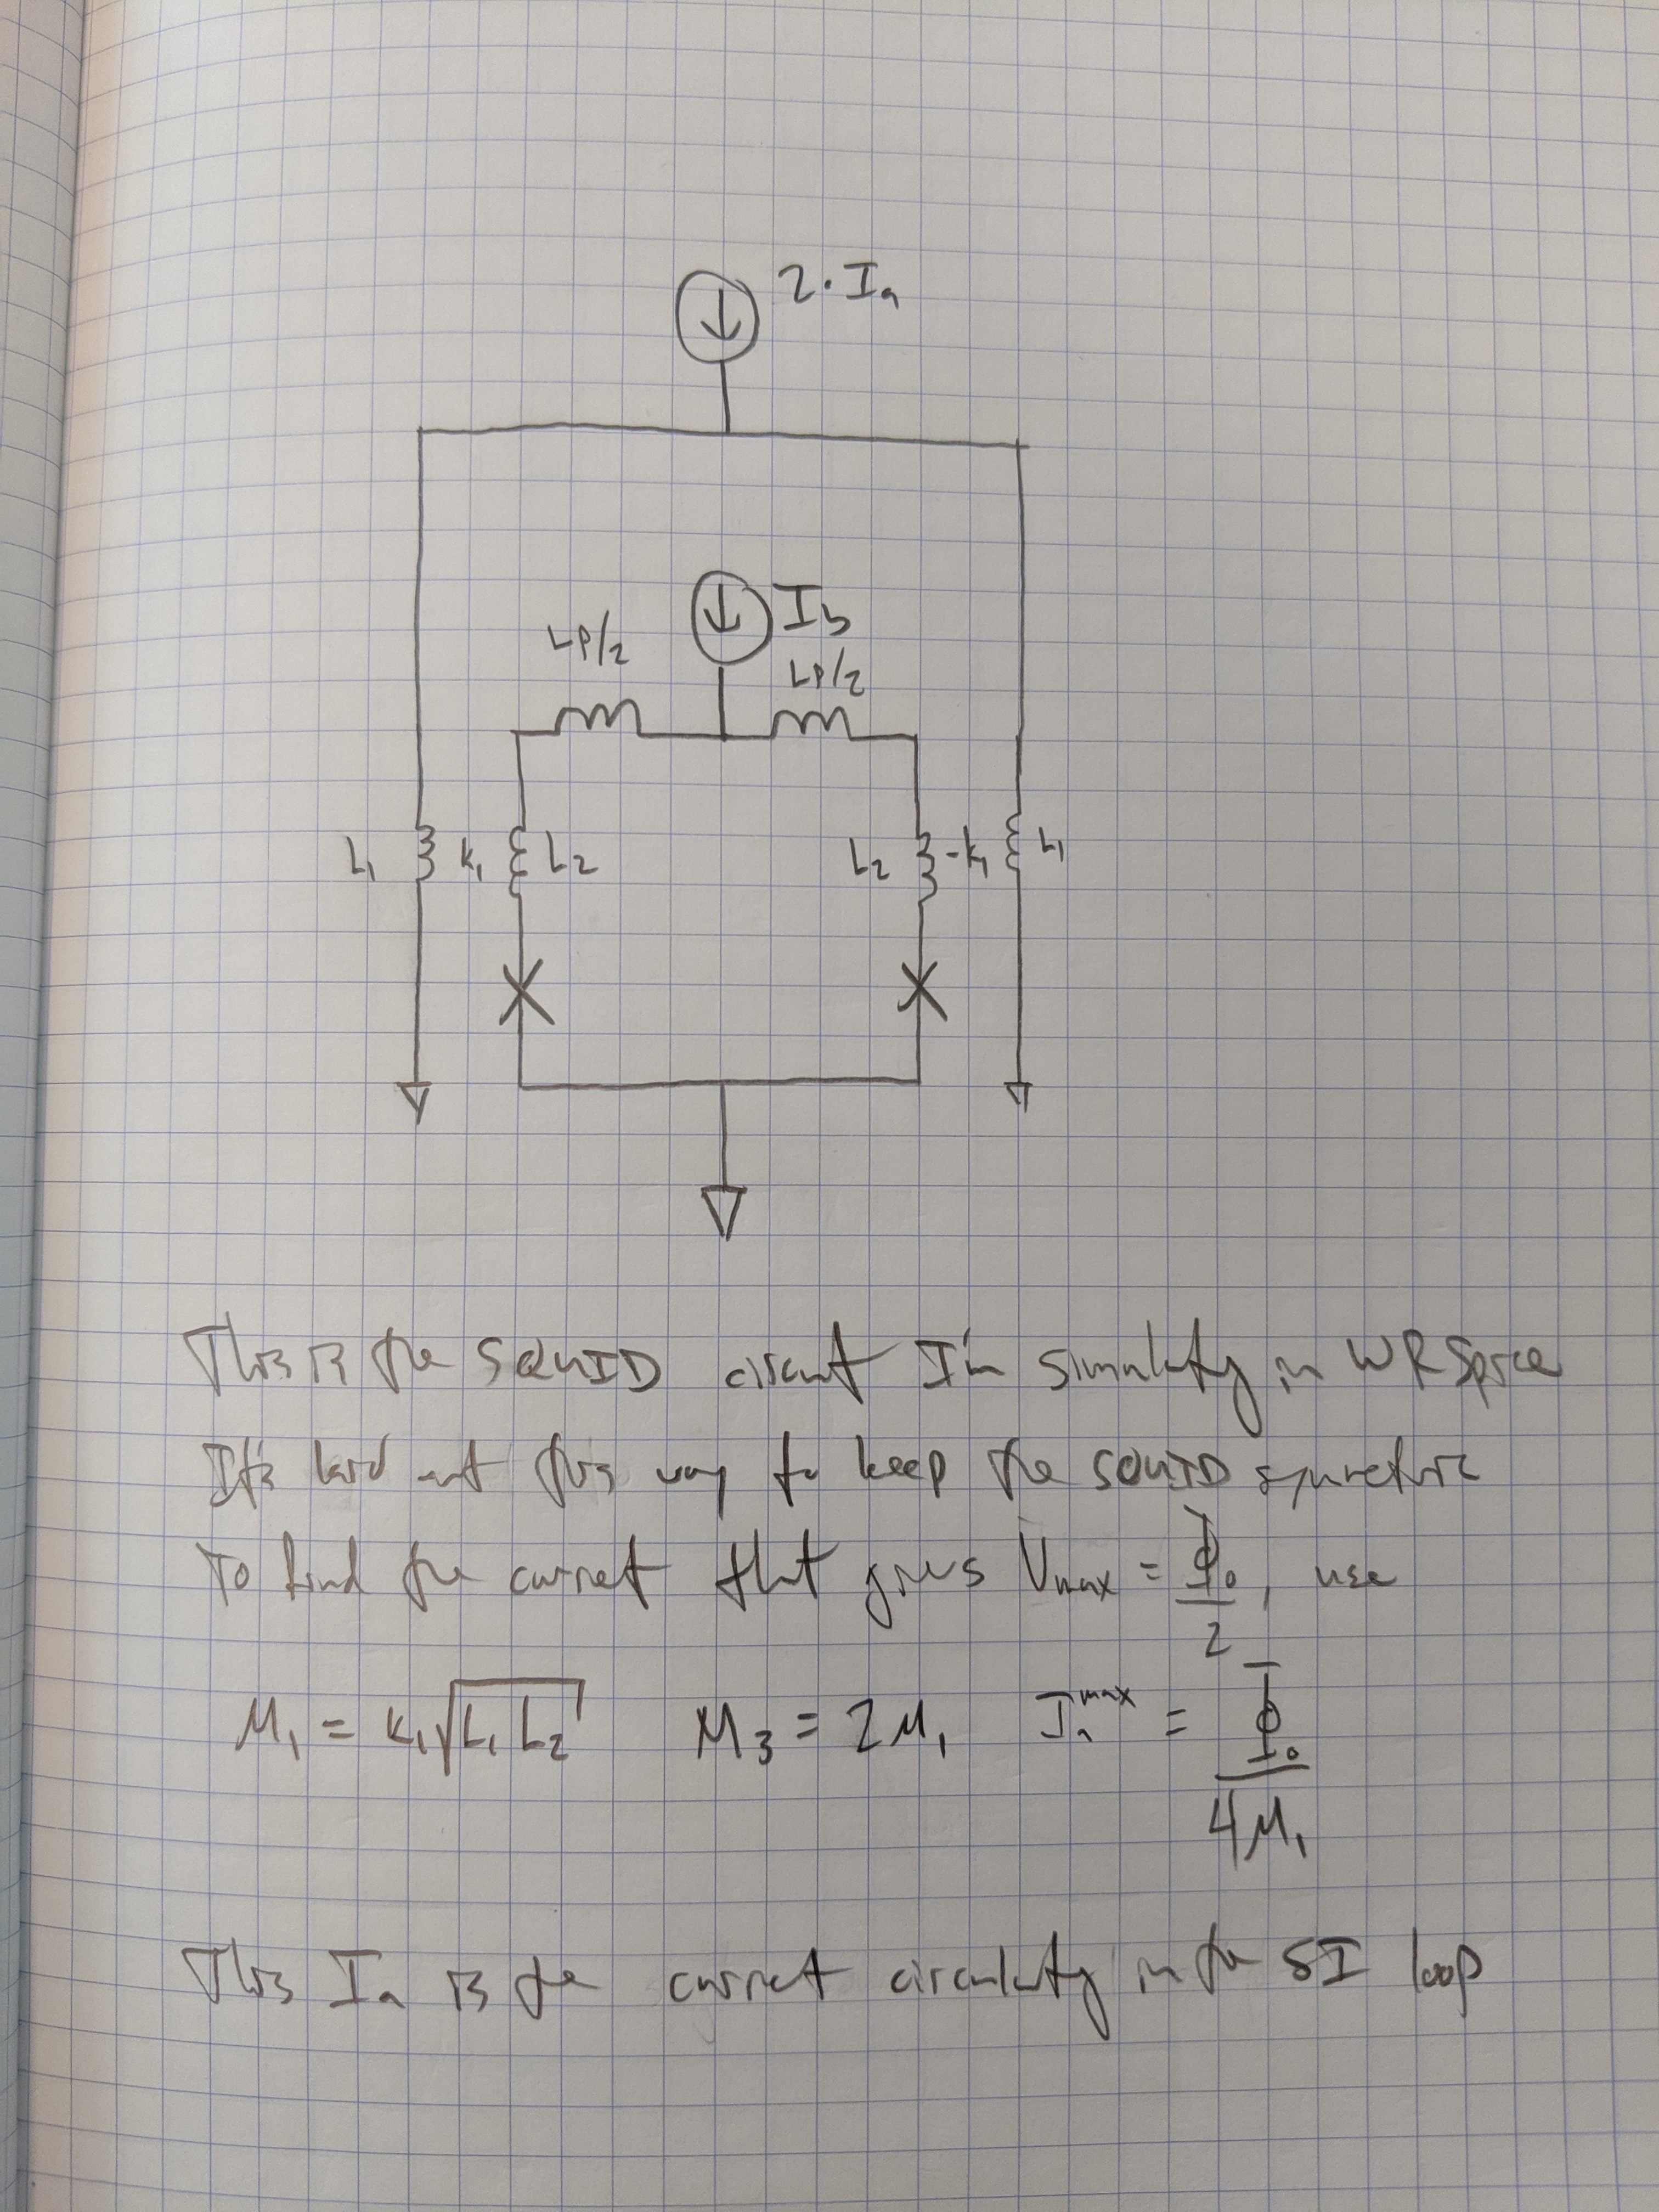 2·Ia
Ib
LP/2
LP/2
L1 k1 L2
L2 -k1 L1
This is the SQUID circuit I'm simulating in WRSpice
It's laid out this way to keep the SQUID symmetric
To find the current that gives Vmax = Φ0/2, use
M1 = k1√L1 L2 M3 = 2M1 Ia^max = Φ0/4M1
This Ia is the current circulating in the SI loop